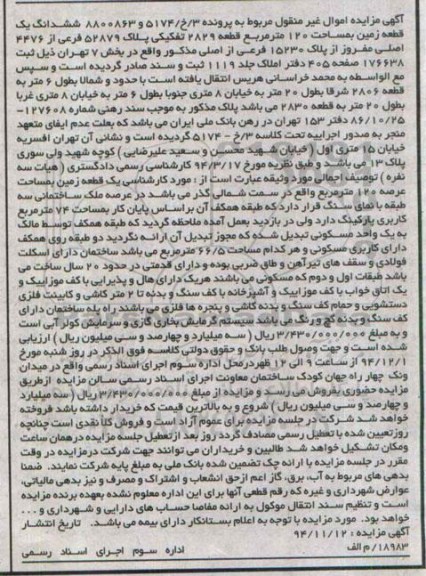 آگهی مزایده اموال غیر منقول مربوط به پرونده ۵۱۷۴/خ/۳ و ۸۸۰۰۸۶۳ ششدانگ یک
قطعه زمین بمساحت ۱۲۰ مترمربع قطعه ۲۸۲۹ تفکیکی پلاک ۵۲۸۷۹ فرعی از ۴۴۷۶
اصلی مفروز از پلاک ۱۵۲۳۰ فرعی از اصلی مذکور واقع در بخش ۷ تهران ذیل ثبت
۱۷۶۶۳۸ صفحه ۴۰۵ دفتر املاک جلد ۱۱۱۹ ثبت و سند صادر گردیده است و سپس
مع الواسطه به محمد خراسانی هریس انتقال یافته است با حدود و شمالا بطول ۶ متر به
قطعه ۲۸۰۶ شرقا بطول ۲۰ متر به خیابان ۸ متری جنوبا بطول ۶ متر به خیابان ۸ متری غربا
بطول ۲۰ متر به قطعه ۲۸۳۰ می باشد پلاک مذکور به موجب سند رهنی شماره ۱۲۷۶۰۸-
۸۶/۱۰/۲۵ دفتر ۱۵۳ تهران در رهن بانک ملی ایران می باشد که بعلت عدم ایفای متعهد
منجر به صدور اجراییه تحت کلاسه ۳/خ - ۵۱۷۴ گردیده است و نشانی آن تهران افسریه
خیابان ۱۵ متری اول (خیابان شهید محسن و سعید علیرضایی) کوچه شهید ولی سوری
پلاک ۱۳ می باشد و طبق نظریه مورخ ۹۴/۳/۱۷ کارشناسی رسمی دادگستری (هیات سه
نفره) توصیف اجمالی مورد وثیقه عبارت است از: مورد کارشناسی یک قطعه زمین بمساحت
عرصه ۱۲۰ مترمربع واقع در سمت شمالی گذر می باشد در عرصه ملک ساختمانی سه
طبقه با نمای سنگ قرار دارد که طبقه همکف آن براساس پایان کار بمساحت ۷۴ مترمربع
کاربری پارکینگ دارد ولی در بازدید بعمل آمده ملاحظه گردید که طبقه همکف توسط مالک
به یک واحد مسکونی تبدیل شده که مجوز تبدیل آن ارائه نگردید دو طبقه روی همکف
دارای کاربری مسکونی و هر کدام مساحت ۶۶/۵ مترمربع می باشد ساختمان دارای اسکلت
فولادی و سقف های تیرآهن و طاق ضربی بوده و دارای قدمتی در حدود ۲۰ سال ساخت می
باشد طبقات اول و دوم که مسکونی می باشند هریک دارای هال و پذیرایی با کف موزاییک و
یک اتاق خواب با کف موزاییک و آشپزخانه با کف سنگ و بدنه تا ۲ متر کاشی و کابینت فلزی
دستشویی و حمام کف سنگ و بدنه کاشی و پنجره ها فلزی می باشند راه پله ساختمان دارای
کف سنگ و بدنه گچ و رنگ می باشد سیستم گرمایش بخاری گازی و سرمایش کولر آبی است
و به مبلغ ۳/۴۳۰/۰۰۰/۰۰۰ ریال (سه میلیارد و چهارصد و سی میلیون ریال) ارزیابی
شده است و جهت وصول طلب بانک و حقوق دولتی کلاسه فوق الذکر در روز شنبه مورخ
۹۴/۱۲/۱ از ساعت ۹ الی ۱۲ ظهر در محل اداره سوم اجرای اسناد رسمی واقع در میدان
ونک چهار راه جهان کودک ساختمان معاونت اجرای اسناد رسمی سالن مزایده ازطریق
مزایده حضوری بفروش می رسد و مزایده از مبلغ ۳/۴۳۰/۰۰۰/۰۰۰ ریال (سه میلیارد
و چهارصد و سی میلیون ریال) شروع و به بالاترین قیمت که خریدار داشته باشد فروخته
خواهد شد شرکت در جلسه مزایده برای عموم آزاد است و فروش کلاً نقدی است چنانچه
روز تعیین شده با تعطیل رسمی مصادف گردد روز بعد از تعطیل جلسه مزایده در همان ساعت
ومکان تشکیل خواهد شد طالبین و خریداران می توانند جهت شرکت درمزایده در وقت
مقرر در جلسه مزایده با ارائه چک تضمین شده بانک ملی به مبلغ پایه شرکت نمایند. ضمنا
بدهی های مربوط به آب، برق، گاز اعم ازحق انشعاب و اشتراک و مصرف و نیز بدهی مالیاتی،
عوارض شهرداری و غیره که رقم قطعی آنها برای این اداره معلوم نشده بعهده برنده مزایده
است و تنظیم سند انتقال موکول به ارائه مفاصا حساب های دارایی و شهرداری و ...
خواهد بود. مورد مزایده با توجه به اعلام بستانکار دارای بیمه می باشد. تاریخ انتشار
آگهی مزایده: ۹۴/۱۱/۱۲
۱۸۹۸۳/م الف اداره سوم اجرای اسناد رسمی